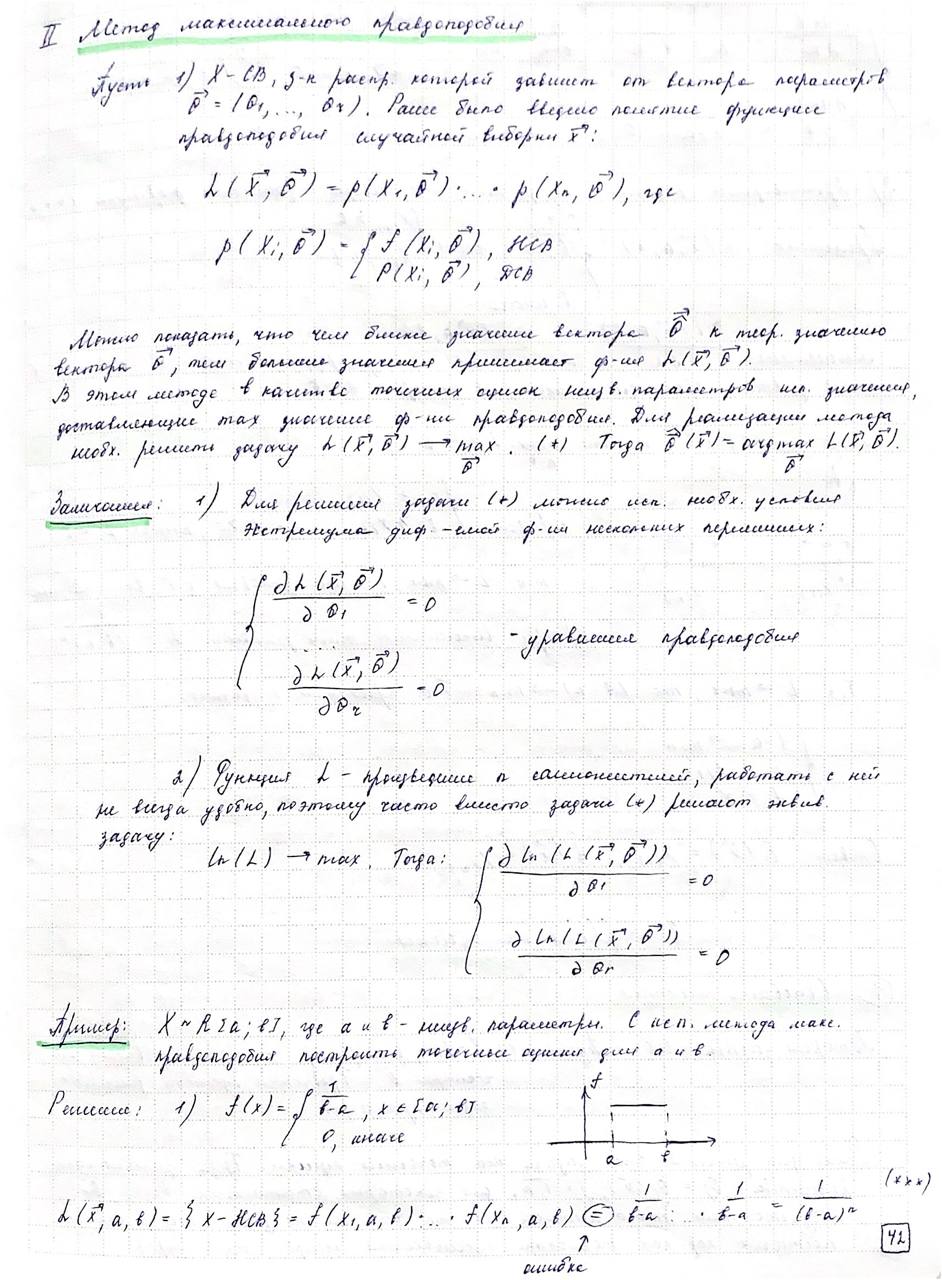 II Метод максимального правдоподобия
Пусть 1) X – СВ, з-н распр. которой зависит от вектора параметров
θ⃗ = (θ₁, ..., θr). Ранее было введено понятие функции
правдоподобия случайной выборки x⃗:
L(X⃗, θ⃗) = p(X₁, θ⃗) · ... · p(Xn, θ⃗), где
p(Xi, θ⃗) = { f(Xi, θ⃗), НСВ
P(Xi, θ⃗), ДСВ
Можно показать, что чем ближе значение вектора θ⃗ к теор. значению
вектора θ⃗, тем большие значения принимает ф-ия L(X⃗, θ⃗).
В этом методе в качестве точечных оценок неизв. параметров исп. значения,
доставляющие max значение ф-ии правдоподобия. Для реализации метода
необх. решить задачу L(X⃗, θ⃗) → max. (*) Тогда θ⃗(X⃗) = argmax L(X⃗, θ⃗).
θ⃗ θ⃗
Замечания: 1) Для решения задачи (*) можно исп. необх. условия
экстремума диф-емой ф-ии нескольких переменных:
{ ∂L(X⃗, θ⃗) / ∂θ₁ = 0
...
∂L(X⃗, θ⃗) / ∂θr = 0
- уравнения правдоподобия
2) Функция L – произведение n сомножителей, работать с ней
не всегда удобно, поэтому часто вместо задачи (*) решают эквив.
задачу:
ln(L) → max. Тогда: { ∂ ln(L(X⃗, θ⃗)) / ∂θ₁ = 0
∂ ln(L(X⃗, θ⃗)) / ∂θr = 0
Пример: X ~ R[a; b], где a и b – неизв. параметры. С исп. метода макс.
правдоподобия построить точечные оценки для a и b.
Решение: 1) f(x) = { 1/(b-a), x ∈ [a; b]
0, иначе
f
a b
L(X⃗, a, b) = { X – НСВ } = f(x₁, a, b) · ... · f(xn, a, b) = 1/(b-a) ... · 1/(b-a) = 1/(b-a)ⁿ (***)
↑
ошибка
42